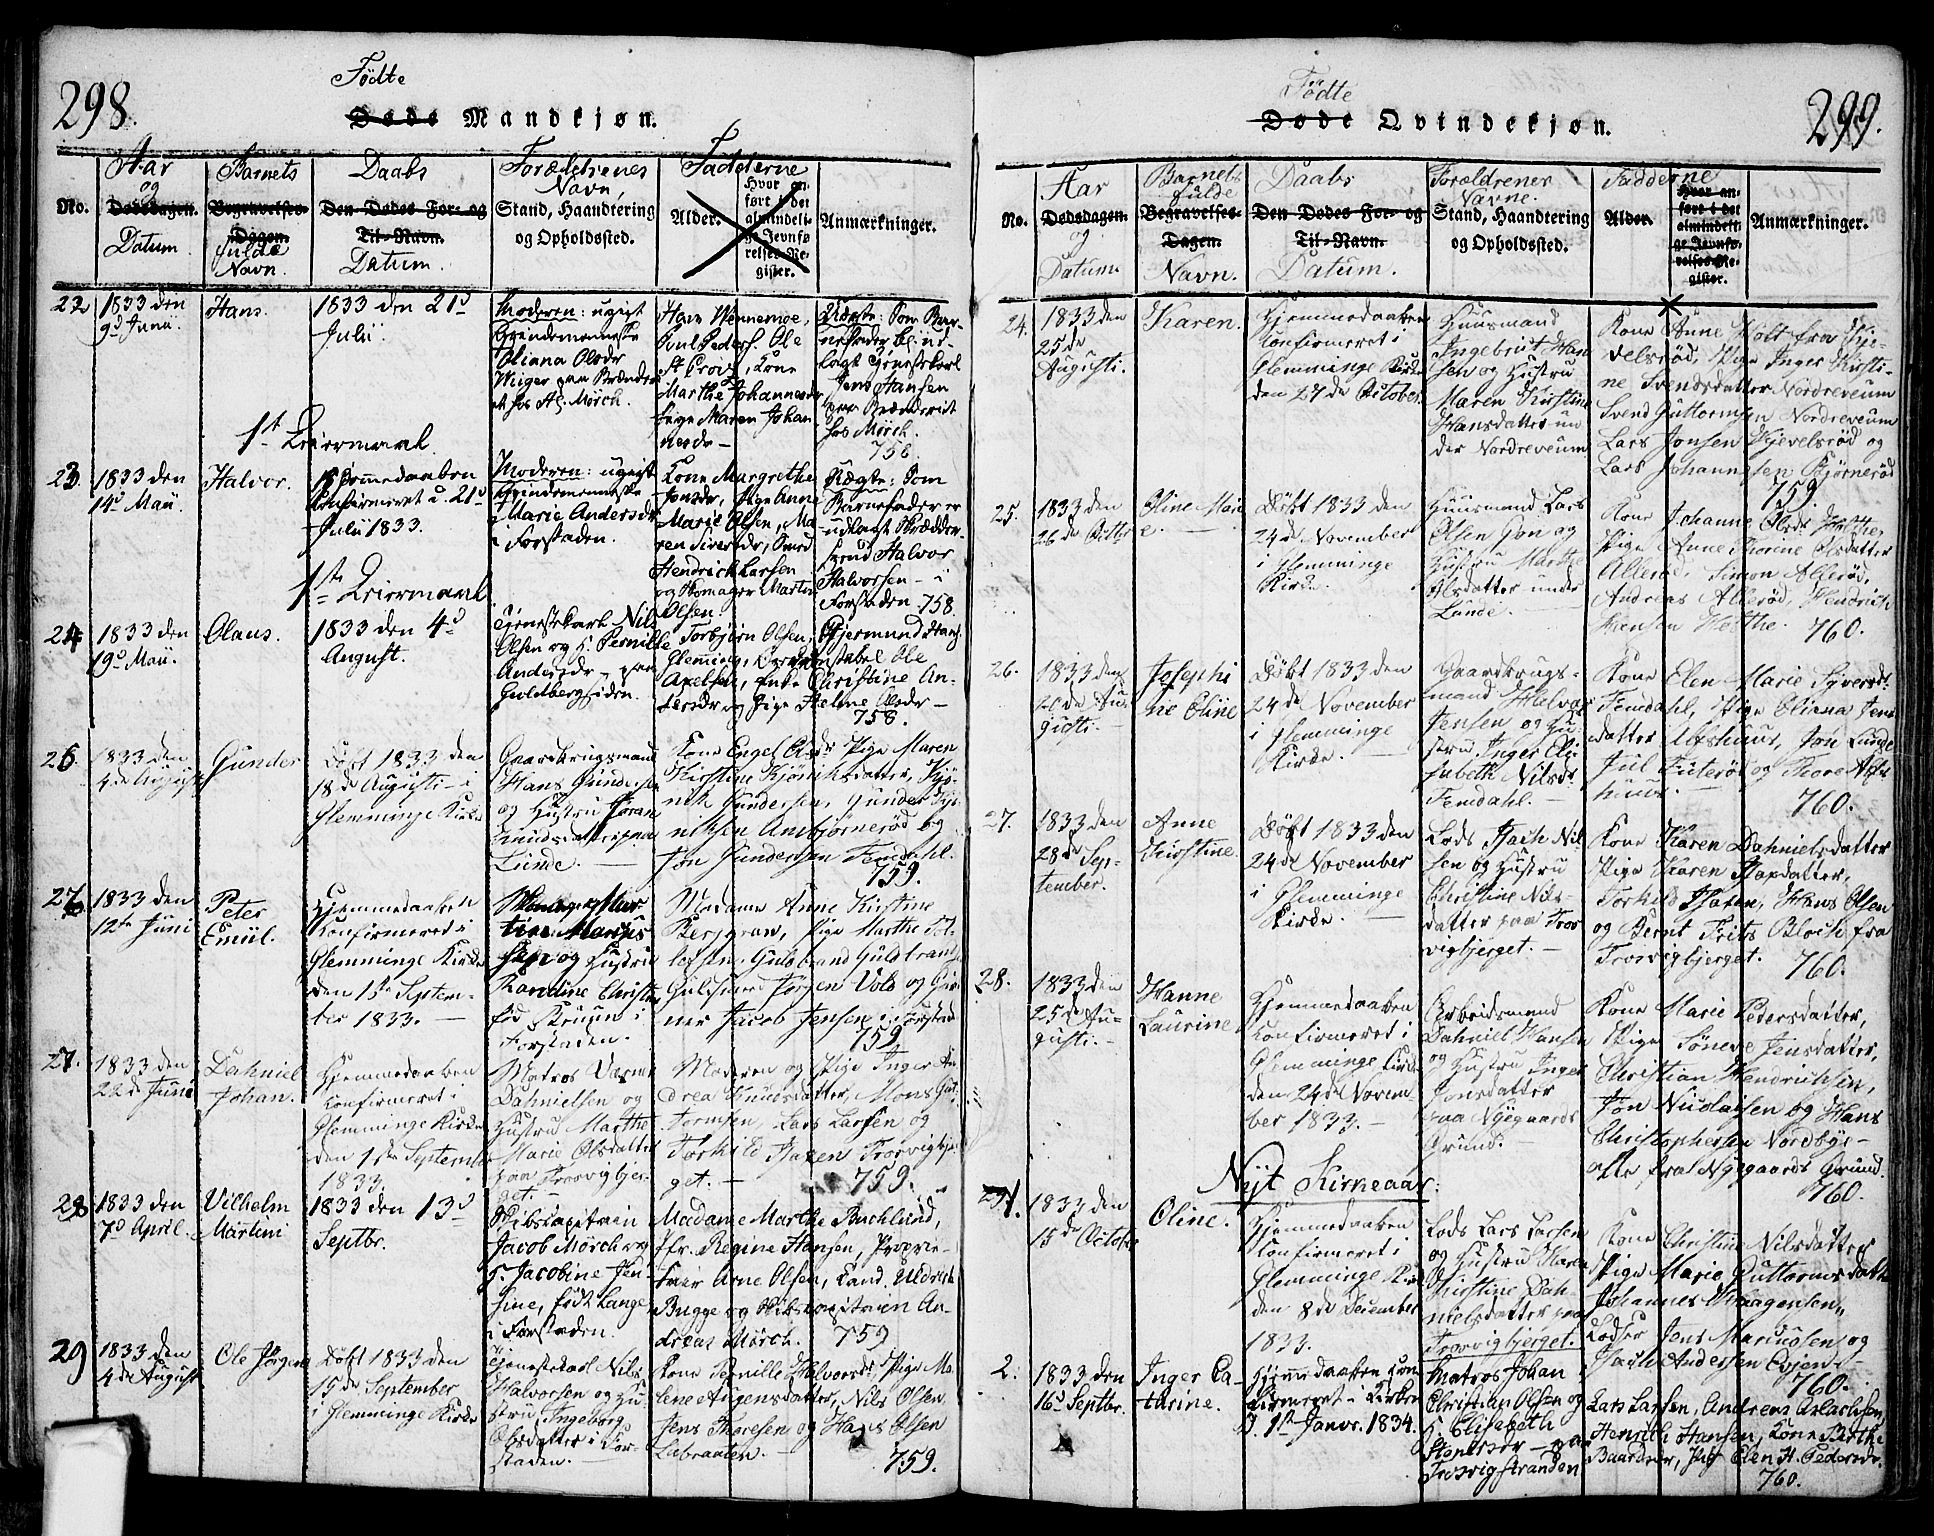 298.
Fødte
Døde Mandkjøn.
No.
Aar
og
Dødsdagen.
Datum.
Barnets
Begravelses-
Dagen.
fulde
Navn.
Daabs
Den Dødes For- og
Til-Navn.
Datum.
Forældrenes
Navn,
Stand, Haandtering
og Opholdssted.
Fadderne
Alder.
Hvor an-
ført i det
almindeli-
ge Jevnfø-
relses-Re-
gister.
Anmærkninger.
22
1833 den
9d Junii.
Hans.
1833 den 21d
Julii
Moderen: ugift
Qvindemenneske
Oliana Olsdr
hos Hr. Mørch.
Poul Peders. Ole
Marthe Johannesdr
Pige Maren Johan
nesdr
Uægte: Som Bar-
nefader blev ud-
lagt Tjenestekarl
Jens Hansen
hos Mørch.
758.
1st Leiermaal.
23.
1833 den
14d Maii.
Halvor.
Hjemmedaaben
Confirmeret d. 21d
Julii 1833.
Moderen: ugift
Qvindemenneske
Marie Andersdr
i Forstaden.
Kone Margrethe
Jonsdr, Pige Anne
Marie Olsen, Ma-
ren Siversdr, Smed
Hendrich Larsen
og Skomager Martin
Olsen.
Uægte: Som
Barnefader er
udlagt Skrædder-
svend Halvor
Halvorsen – i
Forstaden 758.
1ste Leiermaal
24
1833 den
19d Maii.
Olaus.
1833 den 4d
August.
Tjenestekarl Nils
Olsen og H. Pernille
Andersdr – paa
Guldbergsiden.
Torbjørn Olsen, Gjermund Hans.
Glemminge, Ole
Axelsen, Enke Christine An-
dersdr og Pige Helene Olsdr –
758.
26.
1833 den
4de Augusti
Gunder
Døbt 1833 den
18de Augusti – i
Glemminge Kirke
Gaardbrugsmand
Hans Gundersen
og Hustru Joran
Knudsdatter paa
Lunde. –
Kone Engel Olsdr Pige Maren
Kirstine Kjønichsdatter, Kjø-
nich Gundersen, Gunder Kjø-
nichsen Ambjørnerød og
Jon Gundersen Femdahl.
759.
27
1833 den
12te Juni
Peter
Emiil.
Hjemmedaaben
Confirmeret i
Glemminge Kirke
den 1ste Septem-
ber 1833. –
og Hustru
Randine Christine
fød Bruun i
Forstaden.
Madame Anne Kirstine
Berggren, Pige Marthe Tol-
lefsen, Guldbrand Guldbrands.
Guldsmed Jørgen Vold og
Jacob Jensen i Forstad.
759
27.
1833 den
22de Juni
Dahniel
Johan.
Hjemmedaaben
Confirmeret i
Glemminge Kirke
den 1ste Septembr
1833.
Matros
Dahnielsen og
Hustru Marthe
Marie Olsdatter
paa Trosvigbjer-
get. –
Moderen og Pige Inger An-
drea Knudsdatter, Mons Gut-
tormsen, Lars Larsen og
Torkild Isaxen Trosvigbjer-
get. –
759.
28
1833 den
7d April.
Vilhelm
Martini
1833 den 13d
Septbr.
Skibscapitain
Jacob Mørch og
H. Jacobine Jen-
sine, født Lange
i Forstaden.
Madame Marthe Backlund,
Jfr. Regine Hansen, Proprie-
tair Arne Olsen, Cand. Uldrich
Bugge og Skibscapitain An-
dreas Mørch. 759
29
1833 den
4de August
Ole Jørgen
Døbt 1833 den
15de September
i Glemminge Kirke
Tjenestekarl Nils
Halvorsen og Hu-
stru Ingeborg
Olsdatter i For-
staden. –
Kone Pernille Halvorsdr, Pige Ma-
lene Augensdatter, Nils Olsen
Jens Thoresen og Hans Olsen
Labraaten. –
759.
299.
Fødte
Døde Qvindekjøn.
No.
Aar
Dødsdagen.
og
Datum
Barnets
fulde
Begravelses-
Dagen.
Navn.
Daabs
Den Dødes For- og
Til-Navn.
Datum.
Forældrenes
Navne.
Stand, Haandtering
og Opholdssted.
Fadderne
Alder.
Hvor an-
ført i det
almindeli-
ge Jevnfø-
relses-Re-
gister.
Anmærkninger.
24.
1833 den
25de
Augusti.
Karen.
Hjemmedaaben
Confirmeret i
Glemminge Kirke
den 27de October.
Huusmand
Ingebret Han-
sen og Hustru
Maren Kirstine
Hansdatter un-
der Nordreveum
Kone Anne Holt fra Kje-
velsrød, Pige Inger Kirsti-
ne Svendsdatter Nordreveum
Svend Guttormsen Nordreveum
Lars Jonsen Kjevelsrød og
Lars Johannesen Bjørnerød
759.
25.
1833 den
26de Octbr
Oline Mari-
e –
Døbt 1833 den
24de November
i Glemminge
Kirke.
Huusmand Lars
Olsen Gon og
Hustru Marthe
Olsdatter under
Lunde. –
Kone Johanne Olsdr Holthe,
Pige Anne Thorine Olsdatter
Allerød, Simon Allerød,
Andreas Allerød, Hendrich
Hansen Holthe. 760.
26.
1833 den
Au-
gusti. –
Josephi-
ne Oline
Døbt 1833 den
24de November
i Glemminge
Kirke.
Gaardbrugs-
mand Halvor
Jensen og Hu-
stru Inger Eli-
sabeth Nilsdr
Femdahl. –
Kone Elen Marie Syversdr
Femdahl, Pige Oliana Jens-
datter Alshuus, Jon Lunde
Jul Futerød og Thore Als-
huus. –
760.
27.
1833 den
28de Sep-
tember.
Anne
Kirstine.
Døbt 1833 den
24de November
i Glemminge
Kirke. –
Lods Isach Nil-
sen og Hustru
Christine Nils-
datter paa Tros-
vigbjerget. –
Kone Karen Dahnielsdatter
Pige Karen Isaxdatter,
Torkild Isaxen, Hans Olsen
og Bernt Frits Bloch fra
Trosvigbjerget. 760.
28.
1833 den
25de Au-
gusti. –
Hanne
Laurine
Hjemmedaaben
Confirmeret i
Glemminge Kirke
den 24de Novem-
ber 1833. –
Arbeidsmand
Dahniel Hansen
og Hustru Inger
Jonsdatter
paa Nygaards
Grund. –
Kone Marie Pedersdatter,
Pige Søneve Jensdatter,
Christian Hendrichsen,
Jon Nicolaisen og Hans
Christophersen Nordbye –
alle fra Nygaards Grund.
760.
Nyt Kirkeaar.
1.
1833 den
15de October
Oline.
Hjemmedaaben
Confirmeret i
Glemminge Kirke
den 8de December
1833.
Lods Lars Larsen
og Hustru Karen
Kirstine Dah-
nielsdatter paa
Trosvigbjerget.
Kone Christine Nilsdatter
Pige Marie Guttormsdatter
Johannes Aagensen,
Lodser Jens Marcusen og
Isach Andersen Evjen. –
760.
2.
1833 den
16d Septbr.
Inger Ca-
tarine.
Hjemmedaaben Con-
firmeret i Kirken
d. 1st Janvr. 1834.
Matros Johan
Christian Olsen og
H. Elisabeth
– paa
Trosvigstranden
Lars Larsen, Andreas Aslachsen,
Henrich Hansen, Kone Berthe
Baardsdr, Pig Elen H. Pedersdr.
760.